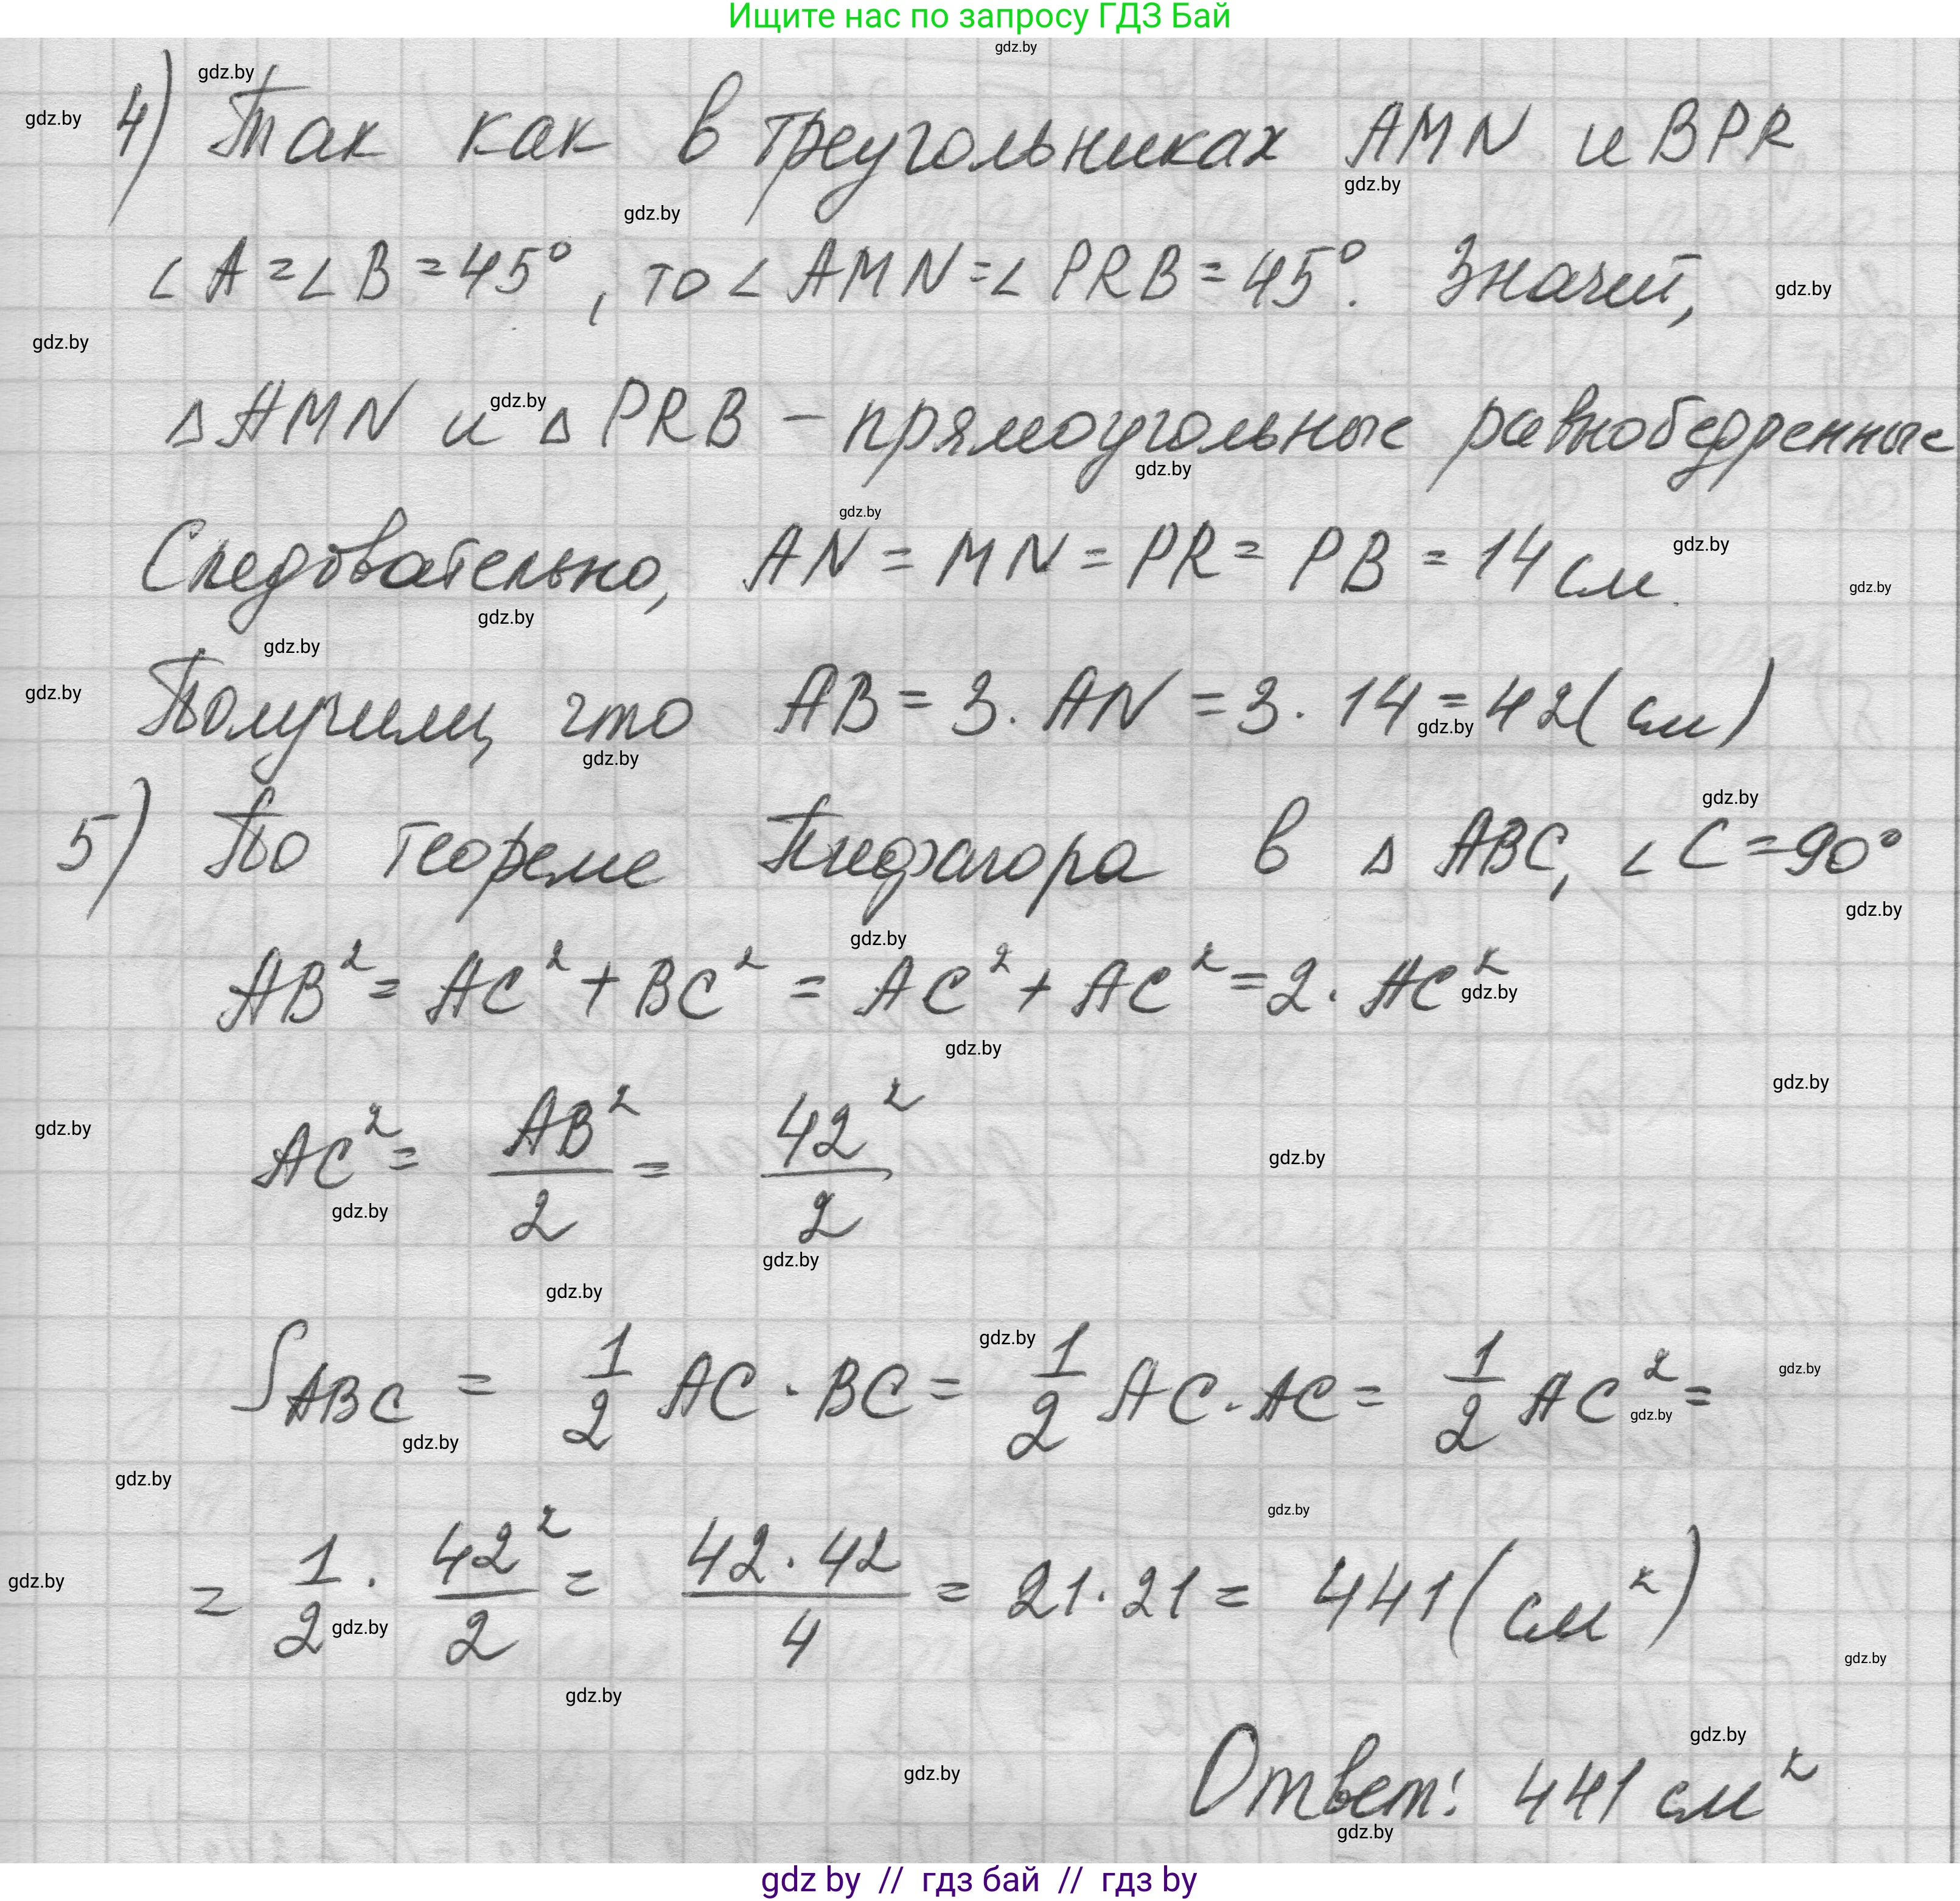 Ищите нас по запросу ГДЗ Бай
4) Так как в треугольниках AMN и BPR
∠A = ∠B = 45°, то ∠AMN = ∠PRB = 45°. Значит,
△AMN и △PRB – прямоугольные равнобедренные
Следовательно, AN = MN = PR = PB = 14 см.
Получили, что AB = 3 · AN = 3 · 14 = 42 (см)
5) По теореме Пифагора в △ABC, ∠C = 90°
AB² = AC² + BC² = AC² + AC² = 2 · AC²
AC² = AB²/2 = 42²/2
S ABC = 1/2 AC · BC = 1/2 AC · AC = 1/2 AC² =
= 1/2 · 42²/2 = 42 · 42/4 = 21 · 21 = 441 (см²)
Ответ: 441 см²
gdz by // гдз бай // гдз by